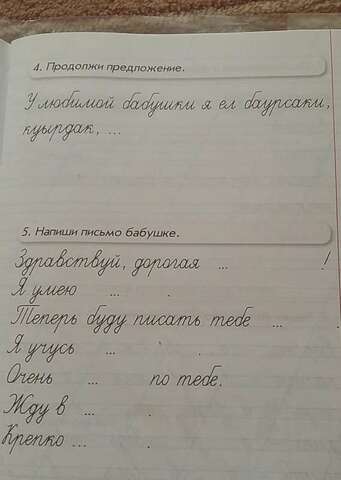 4. Продолжи предложение.
У любимой бабушки я ел баурсаки,
куырдак, ...
5. Напиши письмо бабушке.
Здравствуй, дорогая ... !
Я умею ... .
Теперь буду писать тебе ... .
Я учусь ... .
Очень ... по тебе.
Жду в ... .
Крепко ... .